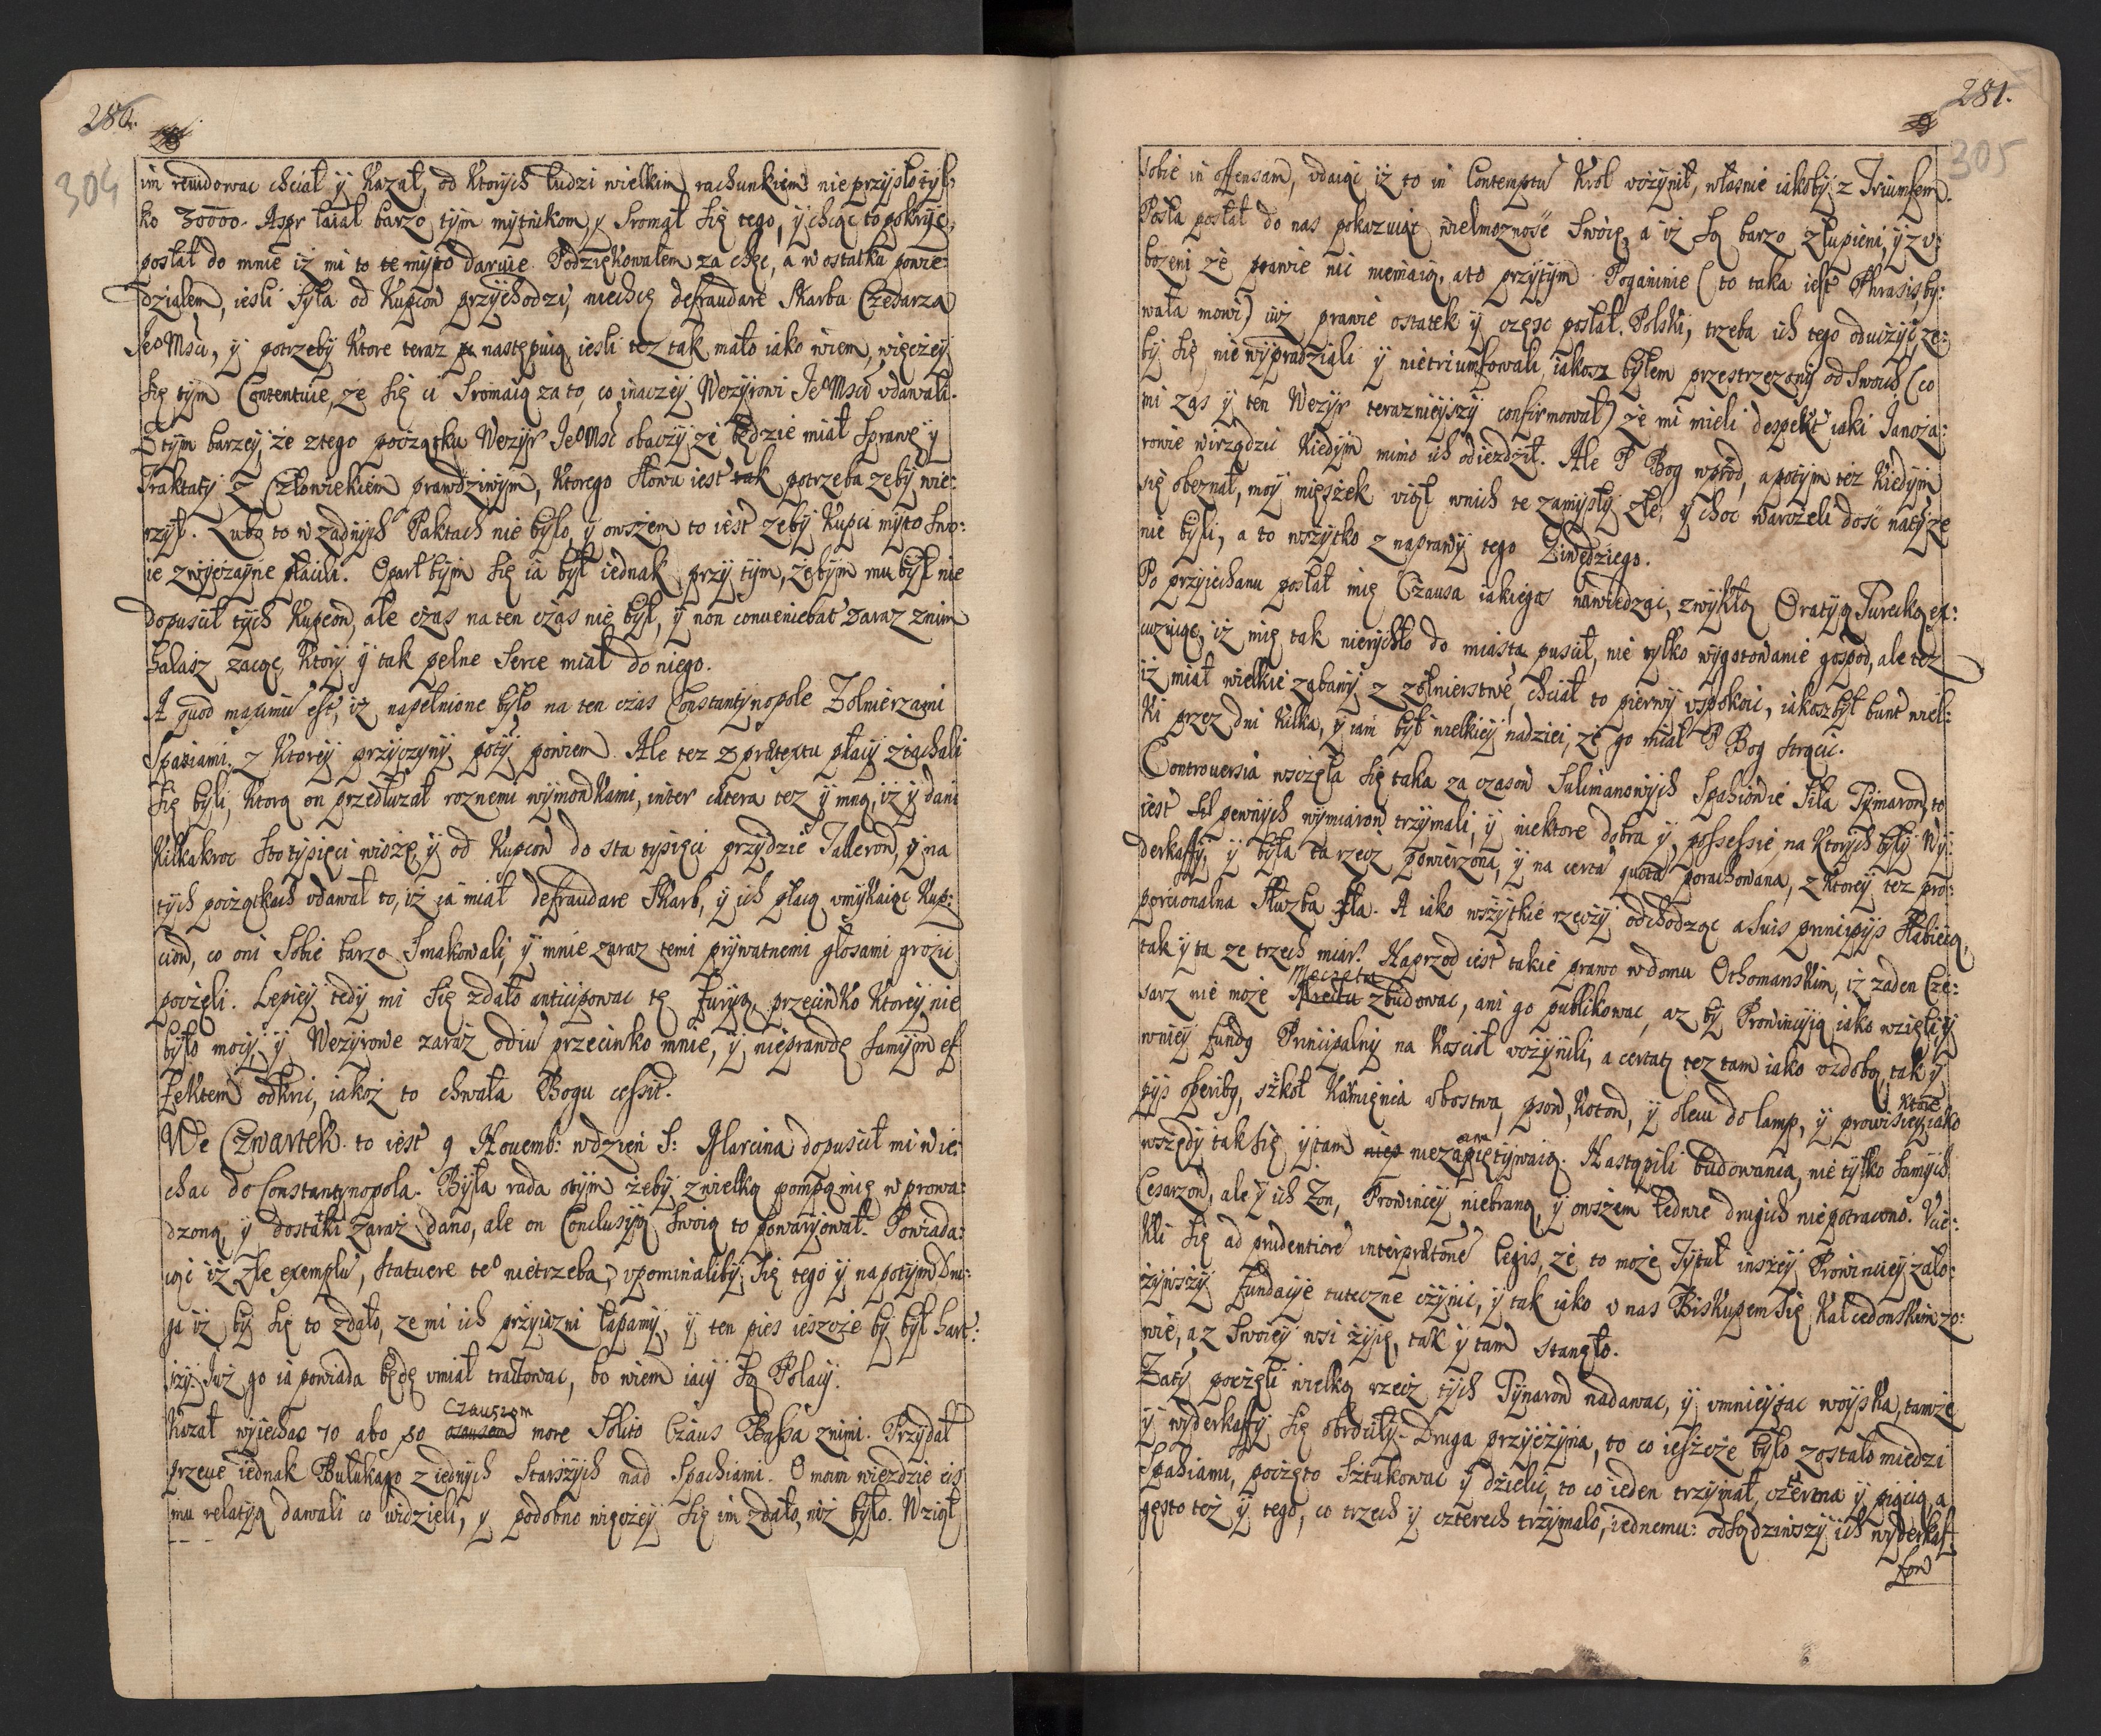 280.
304
im rewidowac chciał ÿ Kazał, od Ktorÿch ludzi wielkim rachunkiem nieprzÿsłotÿl:
ko 30000. Aspr łaiał barzo tÿm mÿtnikom, y Sromał się tego, ÿ chcąc to pokrÿć,
posłał do mnie iż mi to te mÿto daruie. Podziękowałem za chęc, a w ostatku powie:
działem, iesli siła od Kupcow przÿchodzi, niechcę defraudare Skarbu Czesarza
Jeo Msci, ÿ potrzebÿ Ktore teraz następuią iesli tez tak mało iako wiem, więczeÿ
się tÿm Contentuie, ze się ci Sromaią za to, co inaczeÿ Wezÿrowi Jeo Msci vdawali.
Z tÿm barzeÿ, że z tego początku Wezÿr Jeo Msc obaczÿ, ze będzie miał Sprawę ÿ
Traktatÿ z Człowiekiem prawdziwÿm, Ktorego słowu iest tak potrzeba zebÿ wie:
rzÿł. Lubo to w zadnÿch Paktach nie bÿło, ÿ owszem to iest zebÿ Kupci mÿto swo:
ie zwÿczaÿne płacili. Oparł bÿm się ia bÿł iednak przÿ tÿm, żebÿm mu bÿł nie
dopuscił tÿch Kupcow, ale czas na ten czas nie bÿł, ÿ non conueniebat zaraz z nim
hałasz zacząc, Ktorÿ ÿ tak pełne Serce miał do niego.
A quod maximu est, iz napełnione bÿło na ten czas Constantÿnopole Zołnierzami
Spasiami, z Ktoreÿ przÿczÿnÿ potÿ powiem. Ale tez z prætextu płacÿ ziachali
się bÿli, Ktorą on przedłuzał roznemi wÿmowkami, inter cætera tez ÿ mną, iz ÿ dani
Kilkakroc sto tÿsięci wiozę, ÿ od Kupcow do sta tÿsięci przÿdzie Talleron, ÿ na
tÿch początkach vdawał to, iz ia miał defraudare Skarb, ÿ ich płacą vmÿkaiąc Kup:
cow, co oni Sobie barzo Smakowali, ÿ mnie zaraz temi prÿwatnemi głosami grozic
poczęli. Lepieÿ tedÿ mi się zdało anticipowac tę furÿą, przeciwko Ktoreÿ nie
bÿło mocÿ, ÿ Wezÿrowe zaraz odiu przeciwko mnie, ÿ nieprawdę samÿm ef
fektem odkri, iakoż to chwała Bogu cessit.
We Czwartek to iest 9 Nouemb: wdzien S: Marcina dopuscił mi wie:
chac do Constantÿnopola. Bÿła rada otÿm żebÿ z wielką pompą mię w prowa:
dzono, ÿ dostatki zaraz dano, ale on Conclusÿą swoią to powarÿował. Powiada:
iąc iż złe exemplu, statuere teo nietrzeba, vpominalibÿ się tego ÿ napotÿm Dru:
ga iż bÿ się to zdało, ze mi ich przÿiazni łapamÿ, ÿ ten pies ieszcze bÿ bÿł hart:
szÿ. Już go ia powiada będę vmiał tractowac, bo wiem iacÿ są Polacÿ.
Kazał wÿiechac 70 abo 80 czauszom more Solito Czaus Bassa znimi. Przÿdał
przecie iednak Bułukago z iednÿch Starszÿch nad Spachiami. O moim wiezdzie ci
mu relatÿą dawali co widzieli, y podobno więczeÿ się im zdało, niż bÿło. Wziął
281.
305
sobie in offensam, vdaiąc iż to in Contemptu Krol vczÿnił, własnie iakobÿ z Triumfem
Posła posłał do nas pokazuiąc wielmoznosc Swoię, a iz są barzo złupieni, ÿ zv:
bozeni że prawie nic niemaią, a to przÿtÿm Poganinie (to taka iest Phrasis, bÿ:
wała mowi) iuż prawie ostatek ÿ częsc posłał. Polski, trzeba ich tego oduczÿć, że:
bÿ się nie wÿpradziali ÿ nietriumfowali, iakosz bÿłem przestrzezonÿ od Swoich (co
mi zas ÿ ten Wezÿr terazniejszÿ confirmował) że mi mieli despekt iaki Janoza:
rowie wirządzic kiedÿm mimo ich odiezdzil. Ale P Bog wprod, a potÿm tez Kiedÿm
się obeznał, moÿ mięszek viął wnich te zamÿsłÿ złe, ÿ choc warożeli dosc natÿ ze
nie bÿli, a to wszÿtko z naprawÿ tego Zimędziego.
Po przÿiechanu posłał mię Czausa iakiegos nawiedzac, zwÿkłą Oratÿą Turecką ex:
cuzuiąc, iż mię tak nierÿchło do miasta pusćił, nie tylko wÿgotowanie gospod, ale też
iż miał wielkie zabawÿ z zołnierstwe, chciał to pierwÿ vspokoic, iakosz bÿł bunt wiel:
ki przez dni Kilka, ÿ iam bÿł wielkieÿ nadziei, że go miał P Bog strącic.
Controuersia wsczęła się taka za czasow Sulimanowÿch Spahiowie siła Tÿmarow, to
iest pewnÿch wÿmiarow trzÿmali, ÿ niektore dobra ÿ possessie, na Ktorÿch bÿłÿ Wÿ:
derkaffÿ, ÿ bÿła ta rzecz powierzona, ÿ na certa quota porachowana, z Ktoreÿ tez pro:
porcionalna słuzba szła. A iako wszÿtkie rzeczÿ odchodząc a suis principÿs słabieią,
tak ÿ ta ze trzech miar. Naprzod iest takie prawo w domu Othomanskim, iz zaden Ce:
sarz nie moze Meczetu zbudowac, ani go publikowac, az bÿ Prowinciÿą iako wzięliÿ
wnieÿ fundÿ Principalnÿ na Kosciół vczÿnili, a certatq tez tam iako ozdobą, tak ÿ
pijs operibq, szkoł Karmięnia vbostwa, psow, Kotow, ÿ oleiu do lamp, ÿ prowisieÿ Ktore iako
wszędÿ tak się ÿ tam niezapamiętÿwaią. Nastąpili budowania, nie tÿlko samÿch
Cesarzow, ale ÿ ich Zon, Prowincieÿ niebraną, ÿ owszem ledwie drugich niepotracono. Vcie:
kli się ad prudentiore interprætatione legis, że to moze Tÿtuł inszeÿ Prowincieÿ zało:
zÿwszÿ fundacÿe tuteczne czÿnic, ÿ tak iako v nas Biskupem się Kalcedonskim zo:
wie, az Swoieÿ wsi żÿie, tak ÿ tam stanęło.
Zatÿ poczęli wielką rzecz tÿch Tÿmarow nadawac, ÿ vmnieÿszac woÿska, tamze
ÿ wÿderkaffÿ się obrocilÿ. Druga przÿczÿna, to co ieszcze bÿło zostało miedzi
Spahiami, poczęto Sztukowac ÿ dzielic, to co ieden trzÿmał, czterma ÿ pięcią, a
gęsto też ÿ tego, co trzech ÿ czterech trzÿmało, iednemu: odsądziwszÿ ich wÿderkaf
fow